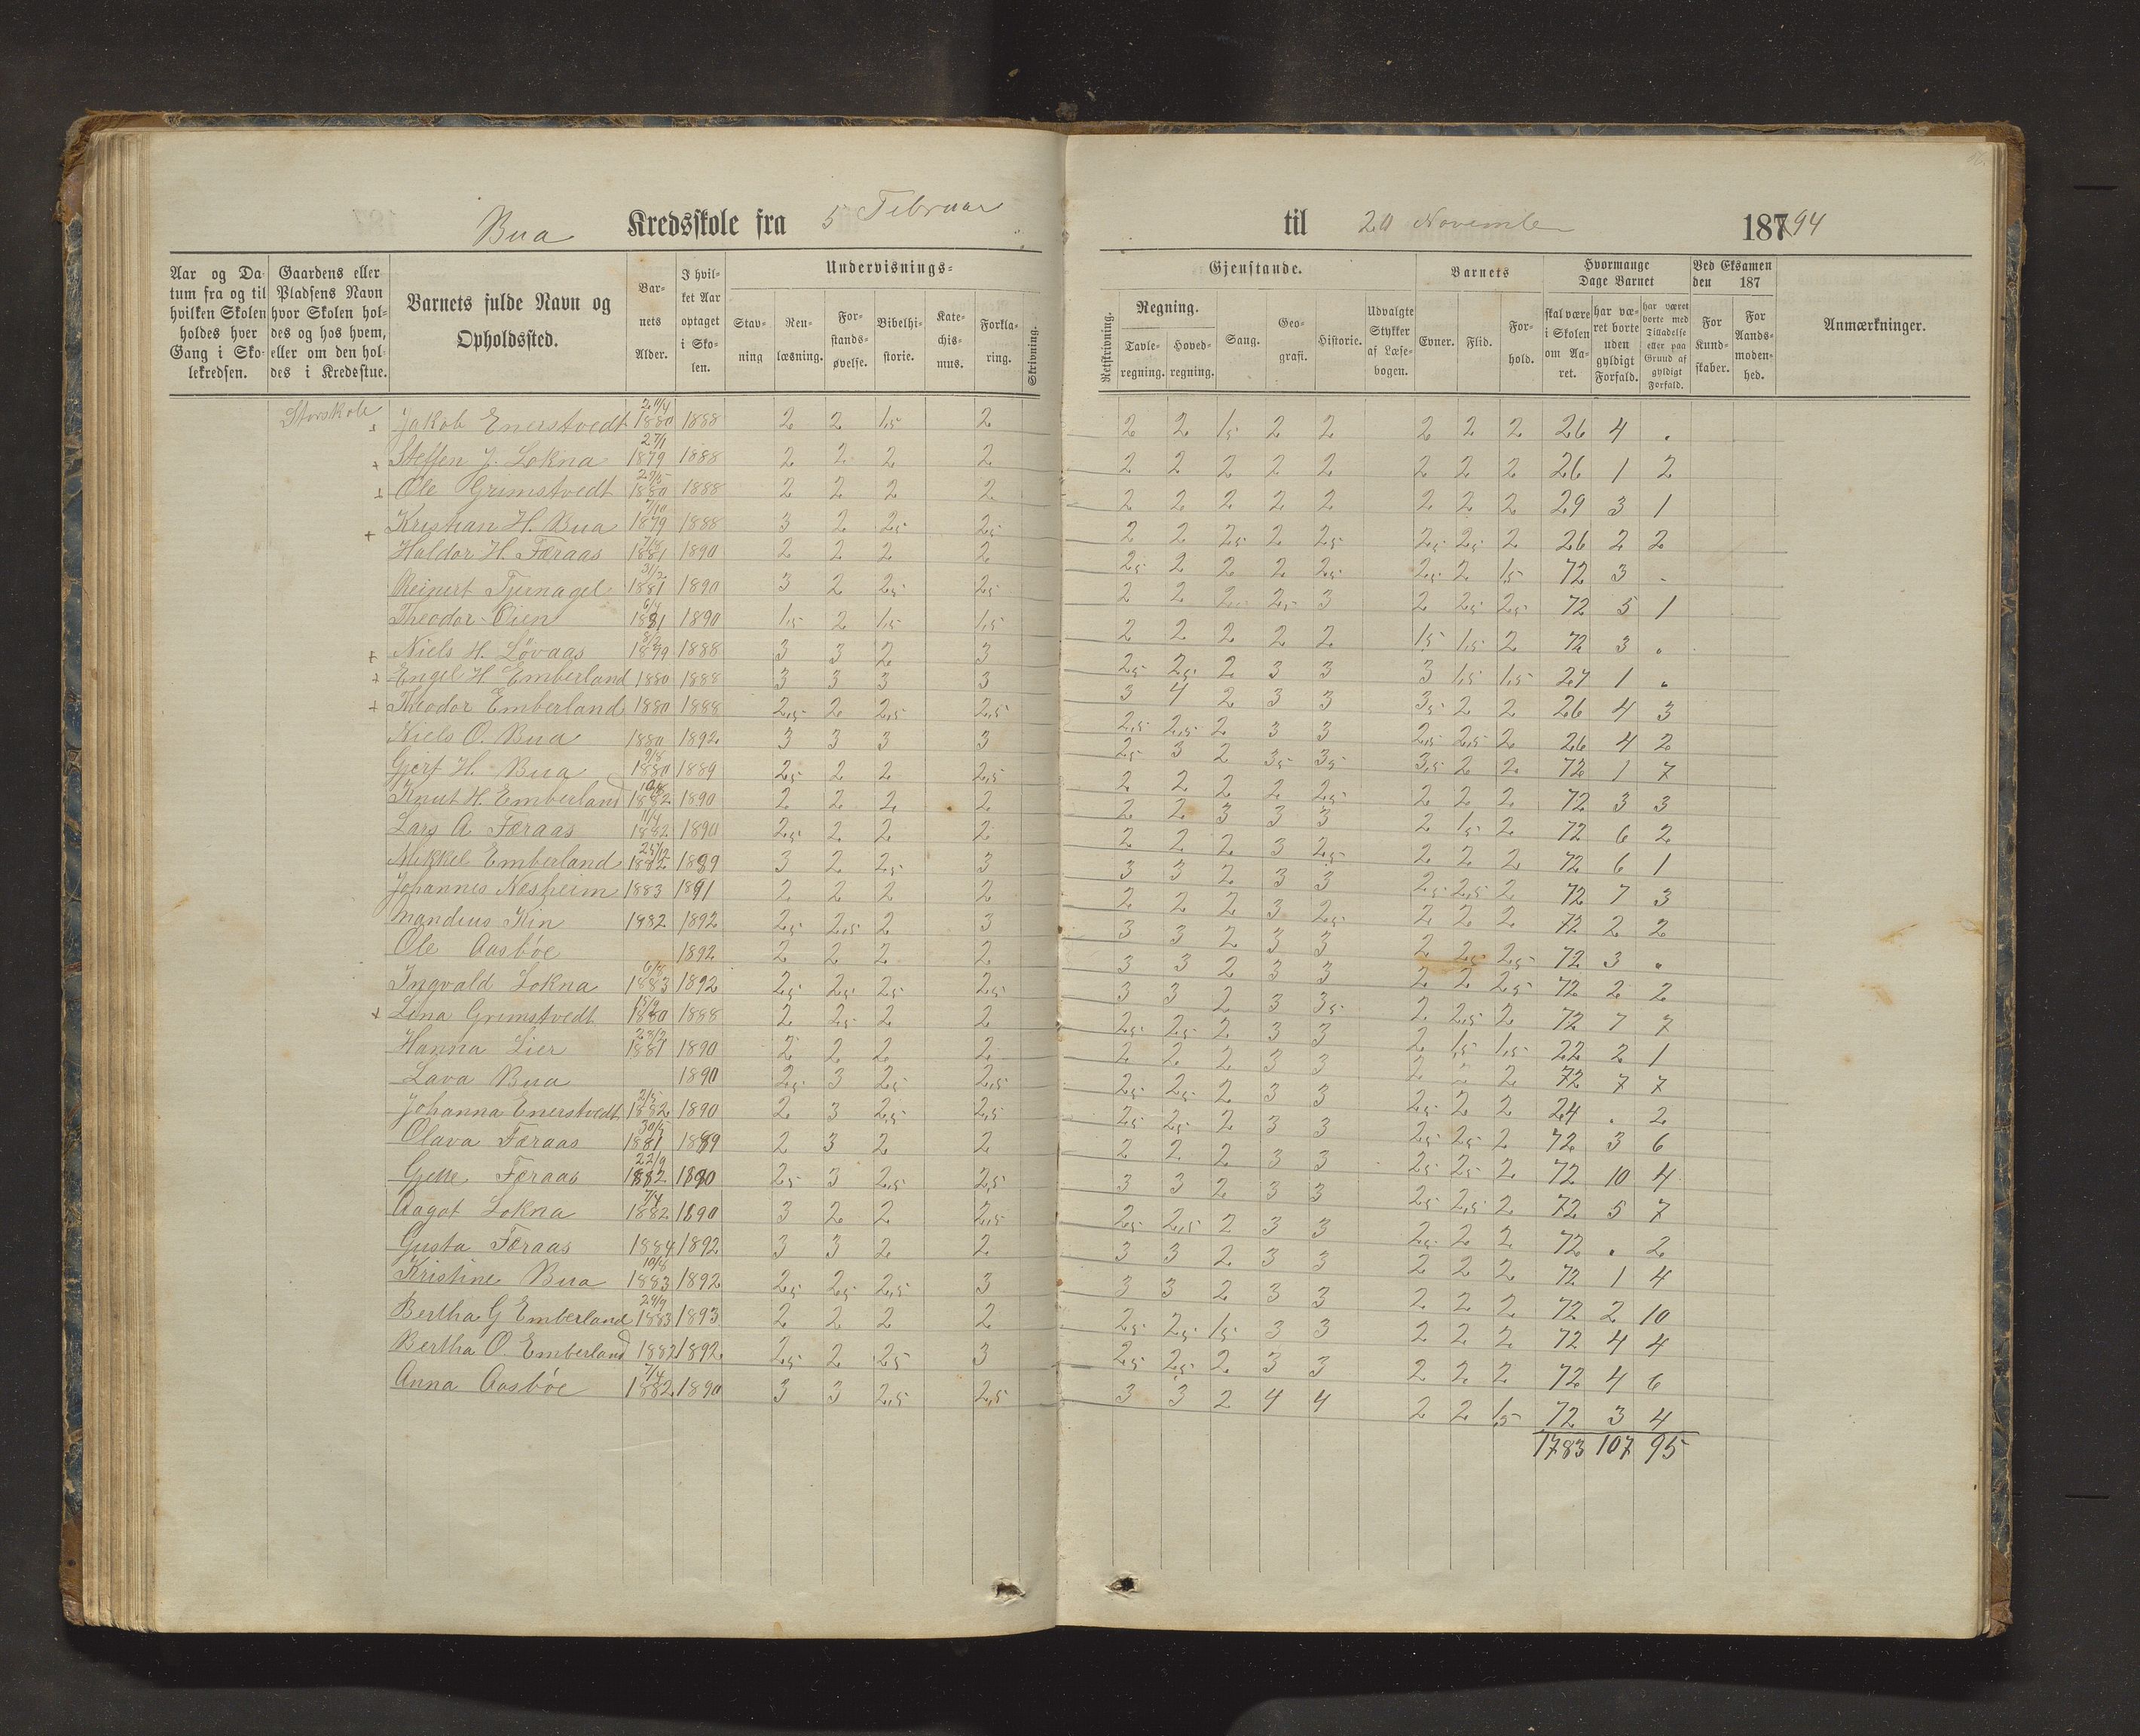 Bua Kredsskole fra 5 Februar til 20 November 187 94
Aar og Datum fra og til hvilken Skolen holdes hver Gang i Skolekredsen.
Gaardens eller Pladsens Navn hvor Skolen holdes og hos hvem, eller om den holdes i Kredsstue.
Barnets fulde Navn og Opholdssted.
Barnets Alder.
I hvilket Aar optaget i Skolen.
Undervisnings-
Stavning
Renlæsning.
Forstandsøvelse.
Bibelhistorie.
Katechismus.
Forklaring.
Skrivning.
Gjenstande.
Retskrivning.
Regning.
Tavleregning.
Hovedregning.
Sang.
Geografi.
Historie.
Udvalgte Stykker af Læsebogen.
Barnets
Evner.
Flid.
Forhold.
Hvormange Dage Barnet
skal være i Skolen om Aaret.
har været borte uden gyldigt Forfald.
har været borte med Tilladelse eller paa Grund af gyldigt Forfald.
Ved Eksamen den 187
For Kundskaber.
For Aandsmodenhed.
Anmærkninger.
Storskole
Jakob Enerstvedt 1880 1888 2 2 1,5 2 2 2 1,5 2 2 2 2 2 26 4 .
+ Steffen J. Lokna 27/1 1879 1888 2 2 2 2 2 2 2 2 2 2 2 2 26 1 2
Ole Grimstvedt 1880 1888 2 2 2 2 2 2 2 2 2 2 2 2 29 3 1
+ Kristian H. Bua 7/10 1879 1888 3 2 2,5 2,5 2 2 2,5 2 2,5 2,5 2,5 2 26 2 2
Haldor H. Færaas 1881 1890 2 2 2 2 2,5 2 2 2 2,5 2,5 2 1,5 72 3 .
Reinert Tjernagel 1881 1890 3 2 2,5 2,5 2 2 2 2,5 3 2 2,5 2,5 72 5 1
Theodor Øien 1881 1890 1,5 2 1,5 1,5 2 2 2 2 2 1,5 1,5 2 72 3 .
+ Niels H. Løvaas 8/2 1879 1888 3 3 2 3 2,5 2,5 2 3 3 3 1,5 1,5 27 1 .
+ Engel H Emberland 1880 1888 3 3 3 3 3 4 2 3 3 3,5 2 2 26 4 3
+ Theodor Emberland 1880 1888 2,5 2 2,5 2,5 2,5 2,5 2 3 3 2,5 2,5 2 26 4 2
Niels O. Bua 1880 1892 3 3 3 3 2,5 3 2 3,5 3,5 3,5 2 2 72 1 7
Gjert H. Bua 9/8 1880 1889 2,5 2 2 2,5 2 2 2 2 2,5 2 2 2 72 3 3
Knut H. Emberland 1882 1890 2 2 2 2 2 2 3 3 3 2 1,5 2 72 6 2
Lars A Færaas 11/4 1882 1890 2,5 2 2 2 2 2 2 3 2,5 2 2 2 72 6 1
Mikkel Emberland 1882 1889 3 2 2,5 3 3 3 2 3 3 2,5 2,5 2 72 7 3
Johannes Næsheim 1883 1891 2 2 2 2 2 2 2 3 2,5 2 2 2 72 2 2
Mandius Kin 1882 1892 2,5 2,5 2 3 3 3 2 3 3 2 2,5 2,5 72 3 .
Ole Aasbøe 1892 2 2 2 2 3 3 2 3 3 2 2 2,5 72 2 2
Ingvald Lokna 6/8 1883 1892 2,5 2,5 2,5 2,5 3 3 2 3 3,5 2 2,5 2 72 7 7
+ Lina Grimstvedt 1880 1888 2 2,5 2 2 2,5 2,5 2 3 3 2 1,5 1,5 22 2 1
Hanna Lier 1881 1890 2 2 2 2 2 2 2 3 3 2 2 2 72 7 7
Lava Bua 1890 2,5 3 2,5 2,5 2,5 2,5 2 3 3 2,5 2 2 24 . 2
Johanna Enerstvedt 2/5 1882 1890 2 3 2,5 2,5 2,5 2,5 2 3 3 2,5 2,5 2 72 3 6
Olava Færaas 30/5 1881 1889 2 3 2 2 2 2 2 3 3 2,5 2,5 2 72 10 4
Gjette Færaas 22/9 1882 1890 2,5 3 2,5 2,5 3 3 2 3 3 2,5 2,5 2 72 5 7
Aagot Lokna 7/4 1882 1890 3 2 2 2,5 2,5 2,5 2 3 3 2,5 2 2 72 . 2
Gusta Færaas 1884 1892 3 3 2 2 3 3 2 3 3 2 2 2 72 1 4
Kristine Bua 1883 1892 2,5 2,5 2,5 3 3 3 2 3 3 2 2 2 72 2 10
Bertha G Emberland 24/9 1883 1893 2 2 2 2 2,5 2,5 1,5 3 3 2 2 2 72 4 4
Bertha O. Emberland 1882 1892 2,5 2 2,5 3 2,5 2,5 2 3 3 2 2 2 72 4 6
Anna Aasbøe 7/4 1882 1890 3 3 2,5 2,5 3 3 2 4 4 2 2 1,5 72 3 4
1783 107 95